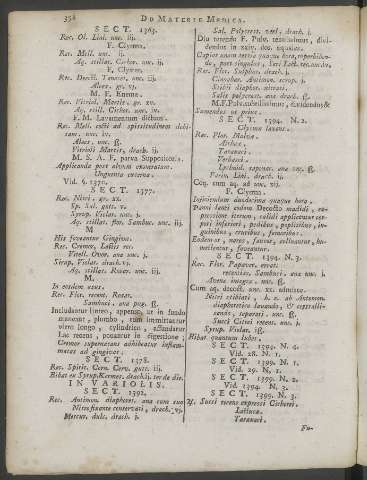 354 DE MATERIE MEDICA.
SECT. 1365.
Rec. Ol. Lini. unc. iij.
F. Clysma.
Rec. Mell. unc. ij.
Aq. stillat. Cichor. unc. ij.
F. Clysma.
Rec. Decoct. Tamar. unc. iij.
Aloes. gr. vj.
M. F. Enema.
Rec. Vitriol. Martis. gr. xv.
Aq. still. Cichor. unc. iv.
F. M. Lavamentum dictum.
Rec. Mell. cocti ad spissitudinem debi-
tam. unc. iv.
Aloes. unc. ß.
Vitrioli Martis. drach. ij.
M. S. A. F. parva Suppositor.
Applicanda post alvum exoneratam.
Unguenta externa.
Vid. §. 1370.
SECT. 1377.
Rec. Nitri. gr. xx.
Sp. Sal. gutt. v.
Syrup. Violar. unc. j.
Aq. stillat. flor. Sambuc. unc. iij.
M.
His foveantur Gingivæ.
Rec. Cremor. Lactis rec.
Vitell. Ovor. ana unc. j.
Sirup. Violar. drach. vj.
Aq. stillat. Rosar. unc. iij.
M.
In eosdem usus.
Rec. Flor. recent. Rosar.
Sambuci. ana pug. ß.
Includantur linteo, appenso, ut in fundo
maneant, plumbo, tum immittantur
vitro longo, cylindrico, affundatur
Lac recens, ponantur in digestione;
Cremor supernatans adhibeatur inflam-
matis ad gingivas.
SECT. 1378.
Rec. Spirit. Corn. Cerv. gutt. iij.
Bibat ex Syrup. Kermes. drach. ij. ter de die.
IN VARIOLIS.
SECT. 1392.
Rec. Antimon. diaphoret. ana cum suo
Nitro fixante conservati, drach. vj.
Mercur. dulc. drach. j.
Sal. Polychrest. drach. j.
Diu terendo F. Pulv. tenuissimus, divi-
dendus in xxiv. dos. æquales.
Capiat unam tertia quaque hora,
pueri singulas, Seri Lact. ter. unc. dr.
Rec. Flor. Sulphur. drach. j.
Cinnabar. Antimon. scrup. j.
Stibii diaphor. nitrati.
Salis polychrest. ana drach. ß.
M.F.Pulv.subtilissimus, dividendus &
Sumendus ut prior.
SECT. 1394. N. 2.
Clysma lavans.
Rec. Flor. Malvæ.
Altheæ.
Taraxaci.
Verbasci.
Lychnid. saponar. ana unc. ß.
Farin. Lini. drach. ij.
Coq. cum aq. ad unc. xij.
F. Clysma.
Injiciendum duodecima quaque hora.
Panni lanei eodem Decocto madidi, ex-
pressione iterum, calidi applicentur cor-
pori inferiori, pedibus, poplitibus, in-
guinibus, cruribus, femoribus.
Eodem os, nares, fauces, colluantur, hu-
mectentur, foveantur.
SECT. 1394. N. 3.
Rec. Flor. Papaver. errat.
recentiss. Sambuci. ana unc. j.
Avena integra. unc. ß.
Cum aq. decoct. unc. xx. admisce.
Nitri stibiati, h. e. ab Antimon.
diaphoretico lavando, & crystalli-
zando, separati, unc. ß.
Succi Citrei recent. unc. j.
Syrup. Violar. iß.
Bibat quantum lubet.
SECT. 1394. N. 4.
Vid. 28. N. 1.
SECT. 1399. N. 1.
Vid. 29. N. 1.
SECT. 1399. N. 2.
Vid. 1394. N. 3.
SECT. 1399. N. 3.
℞. Succi recens expressi Cichorei.
Lactucæ.
Taraxaci.
Fu-